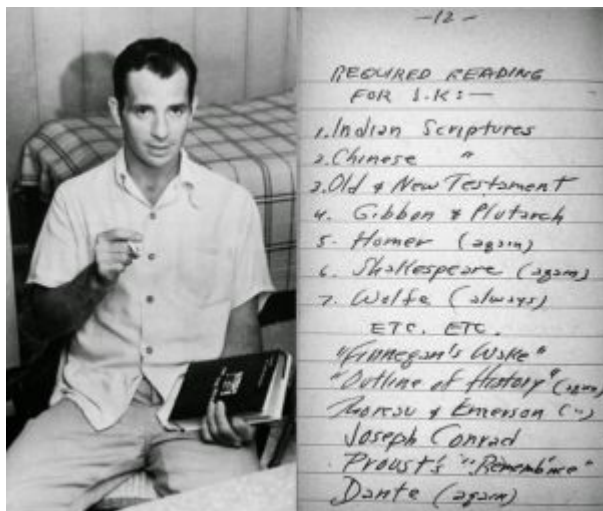 -12-
REQUIRED READING
FOR J.K:—
1. Indian Scriptures
2. Chinese "
3. Old & New Testament
4. Gibbon & Plutarch
5. Homer (again)
6. Shakespeare (again)
7. Wolfe (always)
ETC. ETC.
"Finnegan's Wake"
"Outline of History" (again)
Thoreau & Emerson (")
Joseph Conrad
Proust's "Remembrance"
Dante (again)